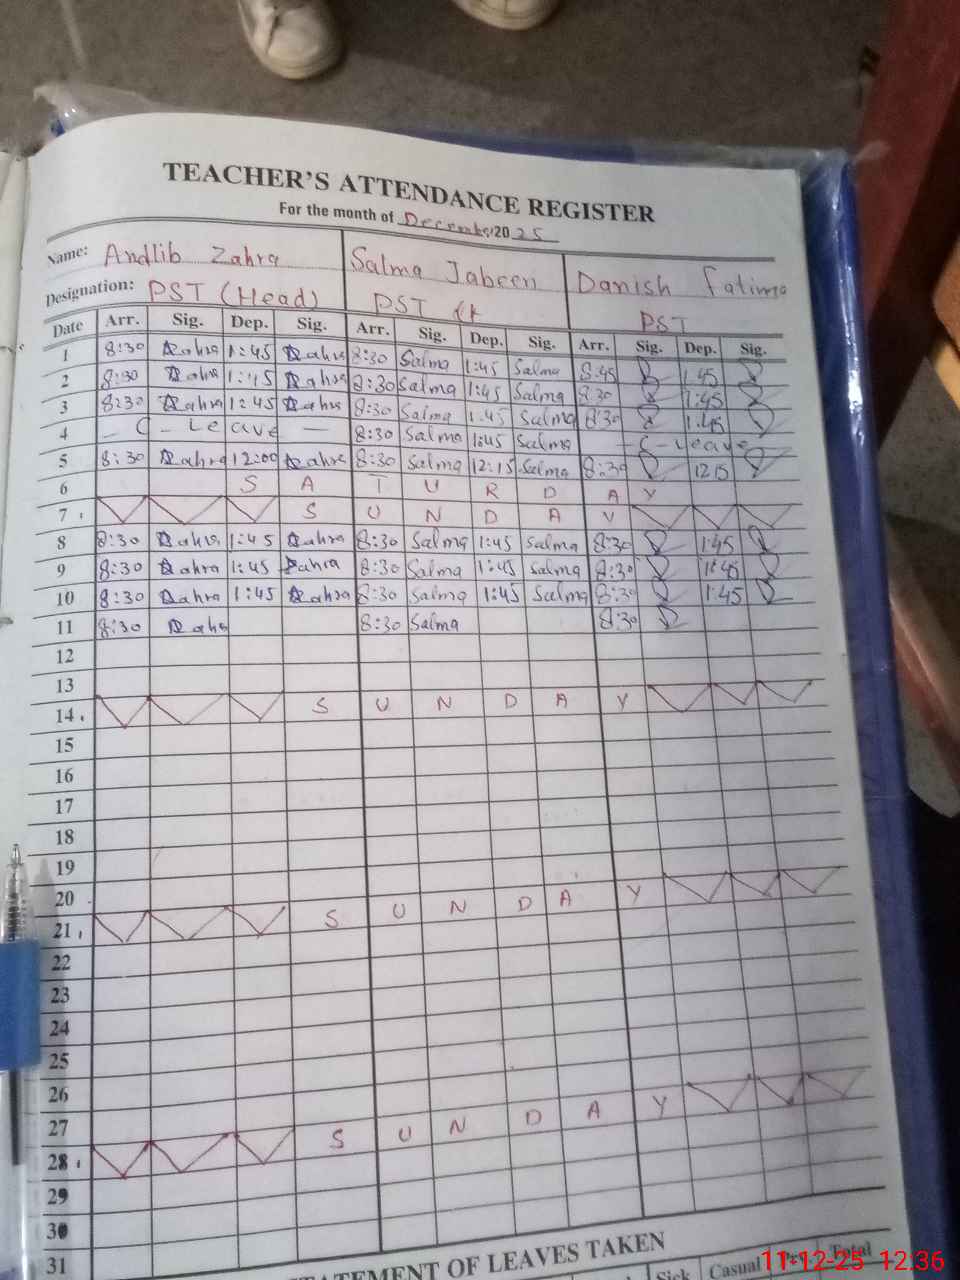 TEACHER'S ATTENDANCE REGISTER
For the month of December 2025
Name: Andlib Zahra Salma Jabeen Danish Fatima
Designation: PST (Head) PST PST
Date Arr. Sig. Dep. Sig. Arr. Sig. Dep. Sig. Arr. Sig. Dep. Sig.
1 8:30 Zahra 1:45 Zahra 8:30 Salma 1:45 Salma 8:45 1:45
2 8:30 Zahra 1:45 Zahra 8:30 Salma 1:45 Salma 8:30 1:45
3 8:30 Zahra 1:45 Zahra 8:30 Salma 1:45 Salma 8:30 1:45
4 - C - Leave - 8:30 Salma 1:45 Salma - C - Leave
5 8:30 Zahra 12:00 Zahra 8:30 Salma 12:15 Salma 8:30 12:15
6 S A T U R D A Y
7 S U N D A Y
8 8:30 Zahra 1:45 Zahra 8:30 Salma 1:45 Salma 8:30 1:45
9 8:30 Zahra 1:45 Zahra 8:30 Salma 1:45 Salma 8:30 1:45
10 8:30 Zahra 1:45 Zahra 8:30 Salma 1:45 Salma 8:30 1:45
11 8:30 Zahra 8:30 Salma 8:30
12
13
14 S U N D A Y
15
16
17
18
19
20
21 S U N D A Y
22
23
24
25
26
27
28 S U N D A Y
29
30
31
STATEMENT OF LEAVES TAKEN
Sick Casual Total
11-12-25 12:36